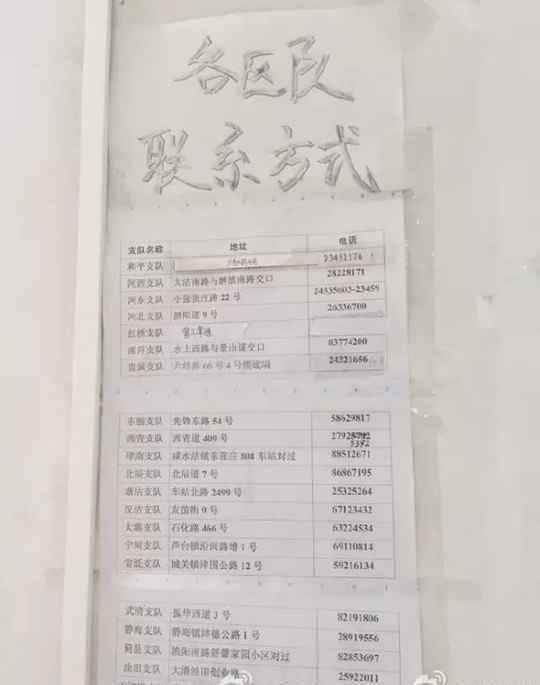 各区队
联系方式
支队名称 地址 电话
和平支队 23451174
河西支队 大沽南路与 南路交口 28228171
河东支队 小 张庄路 22 号 24335603-23459
河北支队 道 9 号 26336700
红桥支队
南开支队 水上西路与 山道交口 83774200
贵 支队 路 66 号 4 号楼 24321656
东丽支队 先锋东路 54 号 58629817
西青支队 西青道 409 号 27925792
5392
津南支队 咸水沽镇 庄 808 车站对过 88512671
北辰支队 北辰道 7 号 86867195
塘沽支队 车站北路 2499 号 25325264
汉沽支队 友谊街 9 号 67123432
大港支队 石化路 466 号 63224534
宁河支队 芦台镇沿河路增 1 号 69110814
宝坻支队 城关镇津围公路 12 号 59216134
武清支队 振华西道 3 号 82191806
静海支队 静海镇津德公路 1 号 28919556
蓟县支队 渔阳南路 家园小区对过 82853697
油田支队 大港油田创业 25922011